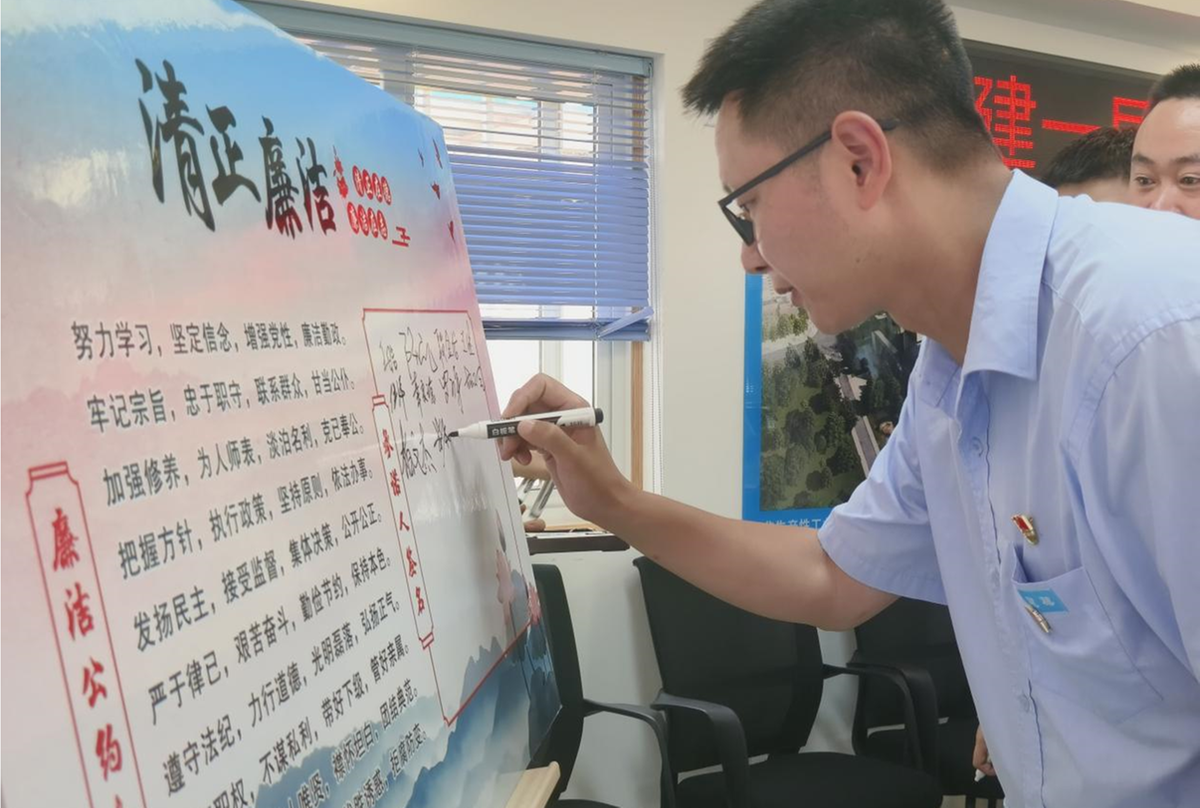 清正廉洁
努力学习，坚定信念，增强党性，廉洁勤政。
牢记宗旨，忠于职守，联系群众，甘当公仆。
加强修养，为人师表，淡泊名利，克已奉公。
把握方针，执行政策，坚持原则，依法办事。
发扬民主，接受监督，集体决策，公开公正。
严于律已，艰苦奋斗，勤俭节约，保持本色。
遵守法纪，力行道德，光明磊落，弘扬正气。
职权，不谋私利，带好下级，管好亲属。
襟怀坦白，团结典范。
诱惑，拒腐防变。
廉洁公约
承诺人签名
白板笔
建一局